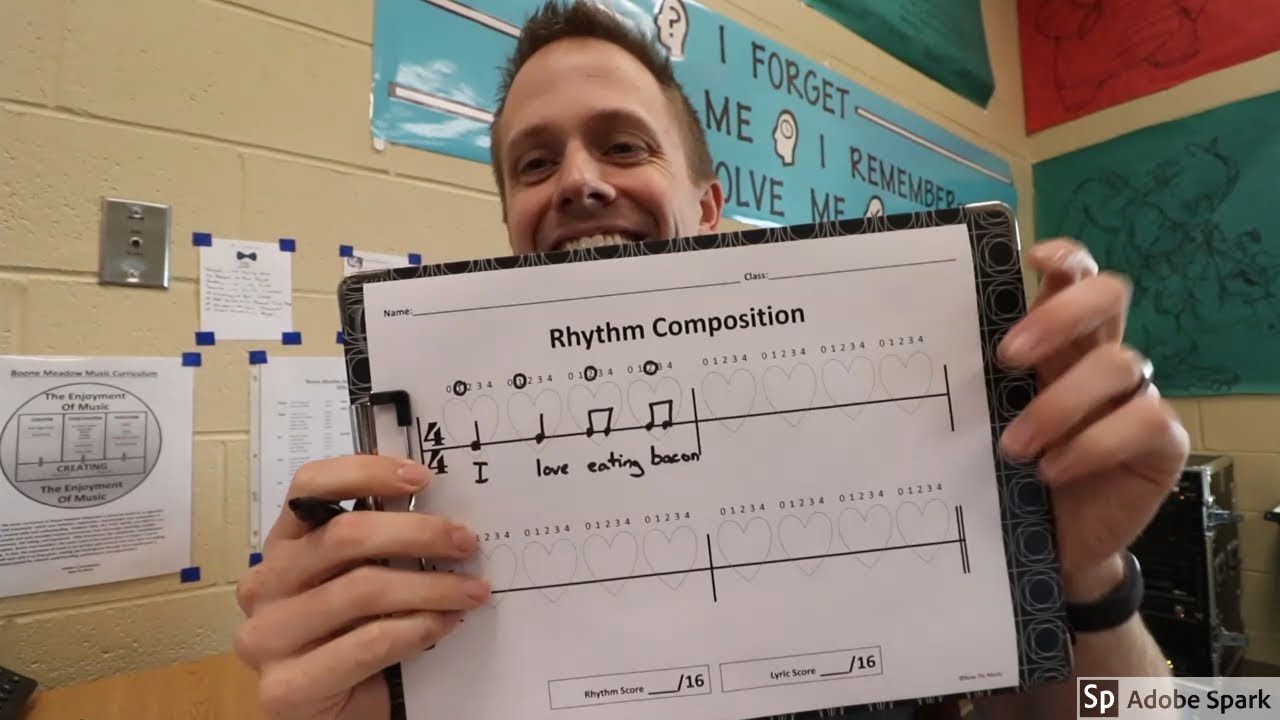 I FORGET
ME I REMEMBER
OLVE ME
Name: Class:
Rhythm Composition
0 1 2 3 4 0 1 2 3 4 0 1 2 3 4 0 1 2 3 4 0 1 2 3 4 0 1 2 3 4 0 1 2 3 4 0 1 2 3 4
4
4
I love eating bacon
1 2 3 4 0 1 2 3 4 0 1 2 3 4 0 1 2 3 4 0 1 2 3 4 0 1 2 3 4 0 1 2 3 4 0 1 2 3 4
Rhythm Score ____/16 Lyric Score ____/16
Boone Meadow Music Curriculum
The Enjoyment
Of Music
CREATING
The Enjoyment
Of Music
Sp Adobe Spark